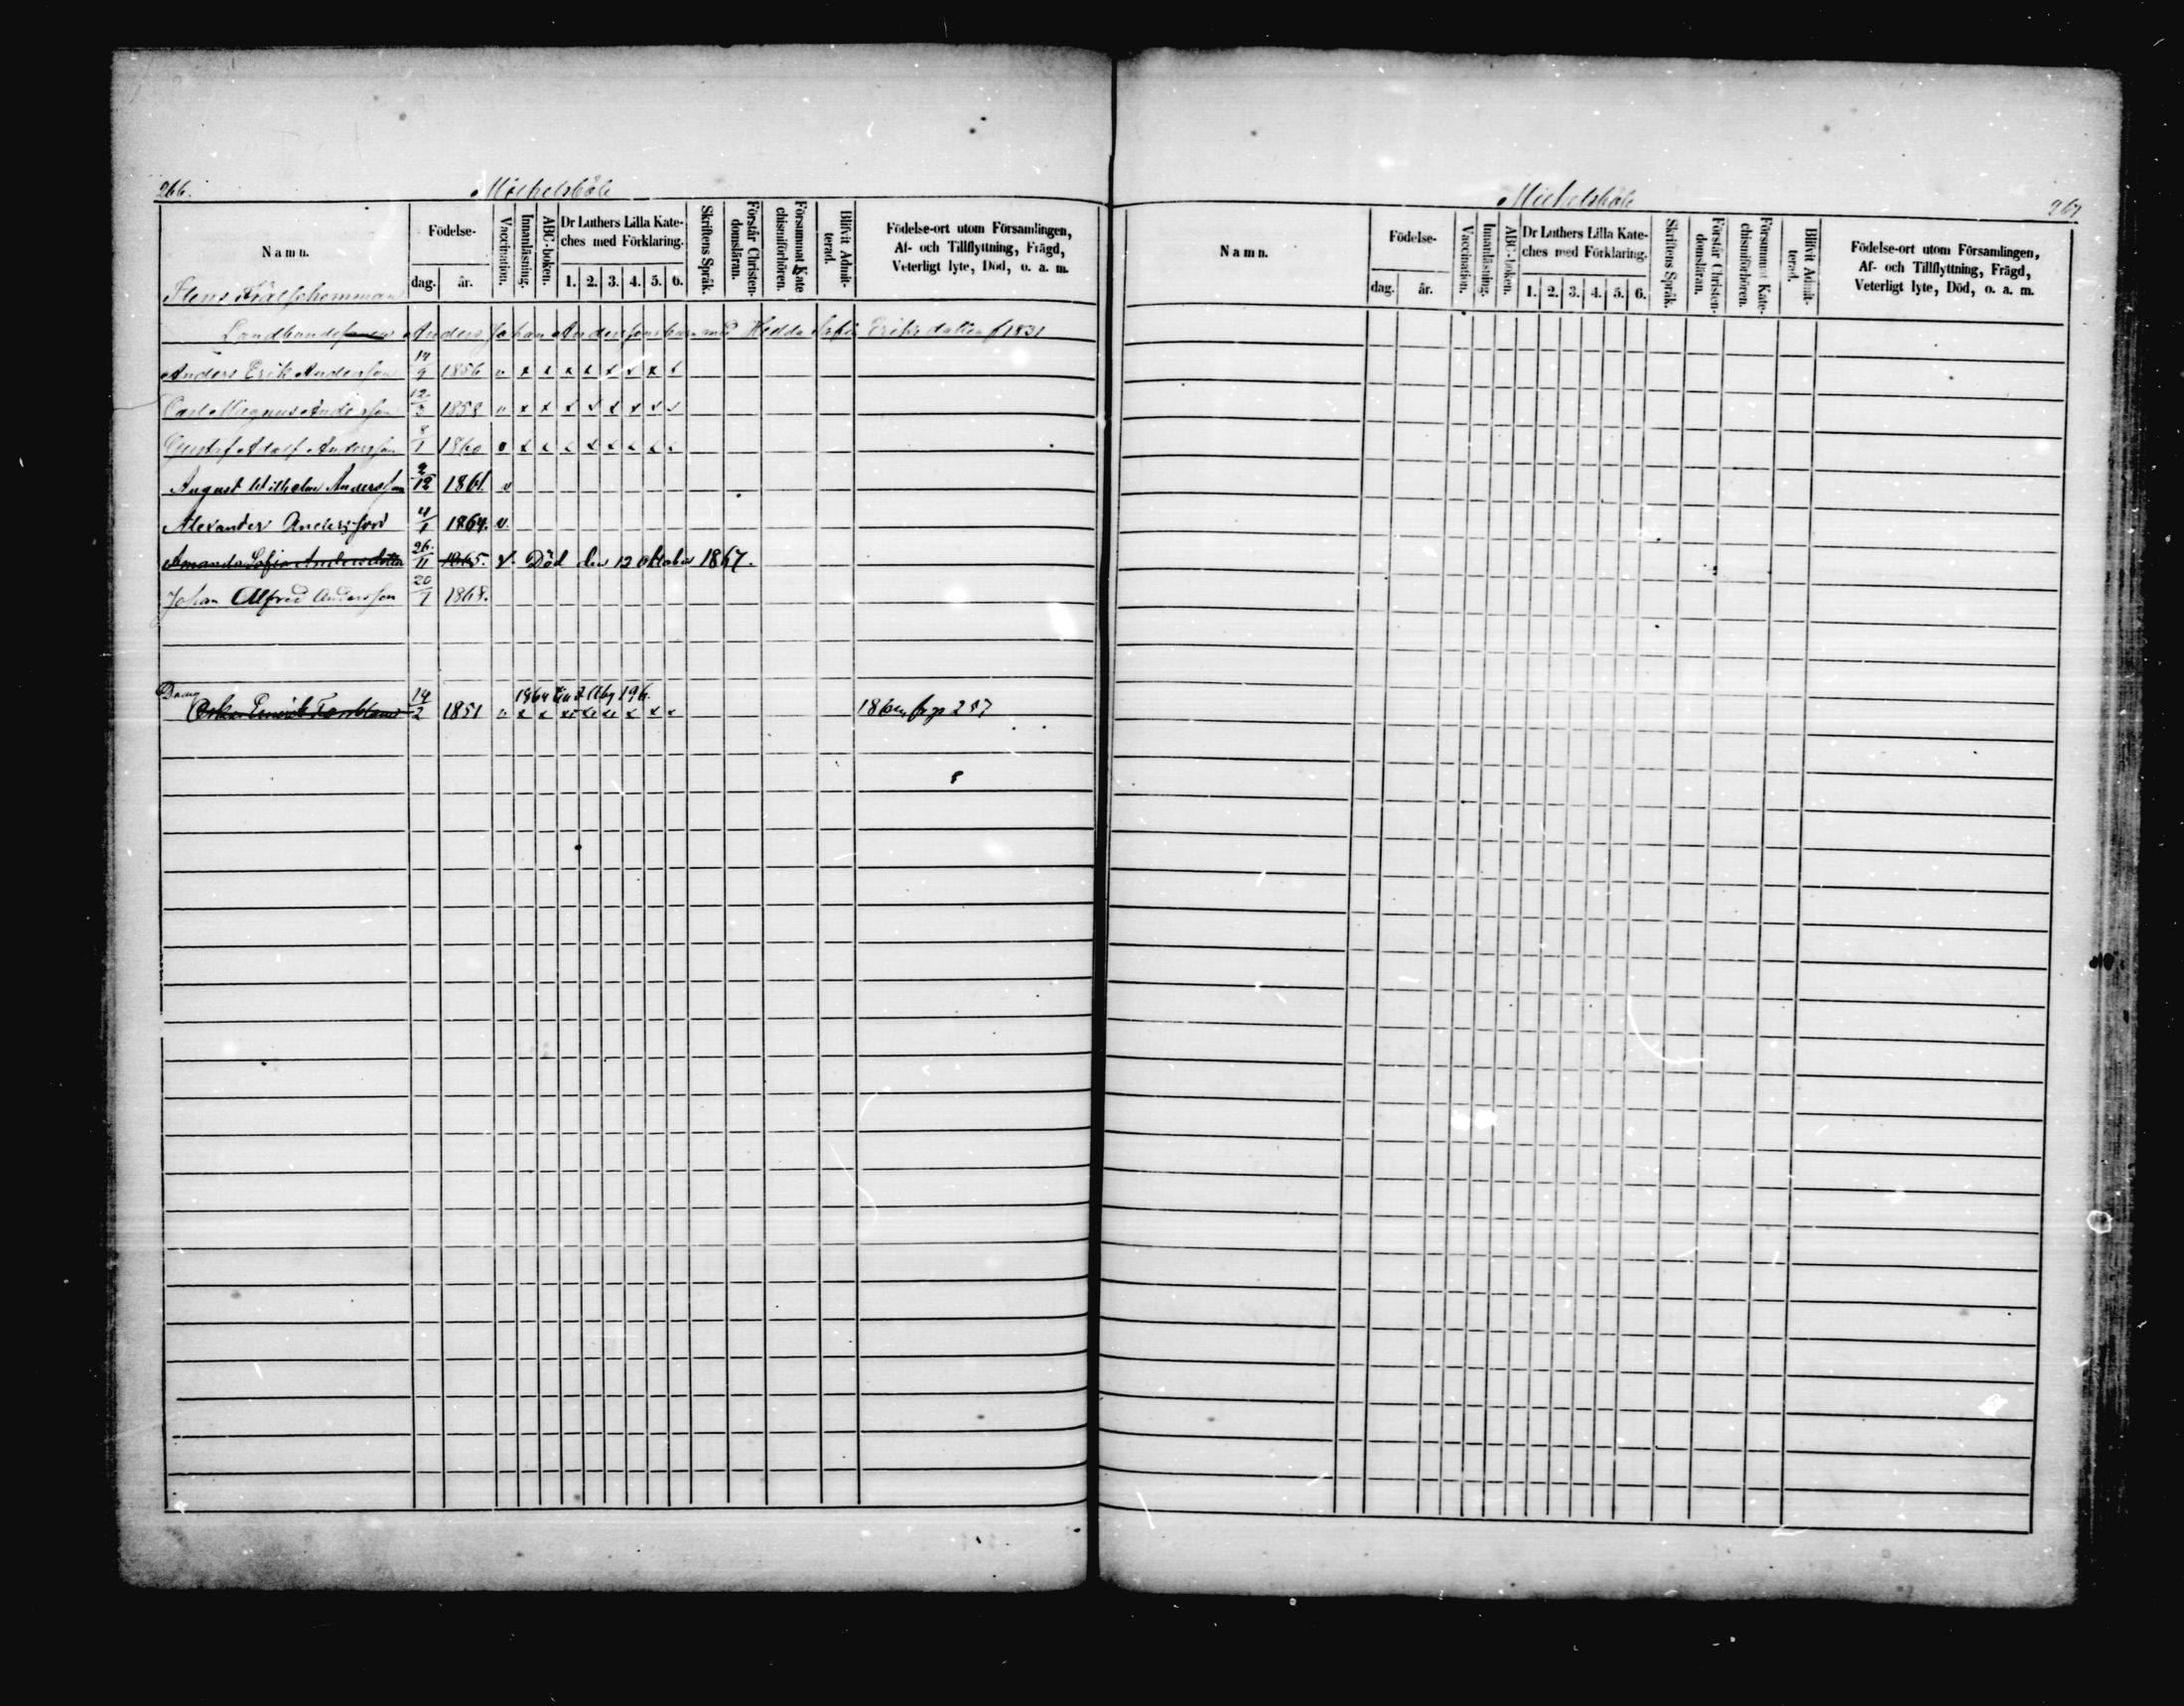 266.
Michelsböle
Namn.
Födelse-
dag.
år.
Vaccination.
Innanläsning.
ABC-boken.
Dr Luthers Lilla Kate-
ches med Förklaring.
1. 2. 3. 4. 5. 6.
Skriftens Språk.
Förstår Christen-
domsläran.
Försummat Kate
chismiförhören.
Blifvit Admit-
terad.
Födelse-ort utom Församlingen,
Af- och Tillflyttning, Frägd,
Veterligt lyte, Död, o. a. m.
Landbonde Anders Johan Andersson barn med Hedda Sofia Eriksdotter f 1831
Anders Erik Andersson 14/9 1856 v x x x x x x x x
Carl Magnus Andersson 12/3 1858 v x x x x x x x x
Gustaf Adolf Andersson 8/1 1860 v x x x x x x x x
August Wilhelm Andersson 2/12 1861. v
Alexander Andersson 4/1 1864. v.
Amanda Sofia Andersdotter 26/11 1865. v. Död den 12 Oktober 1867.
Johan Alfred Andersson 20/1 1868.
14/2 1851 v x x x x x x x x 18 fr p 257
Michelsböle
267
Namn.
Födelse-
dag.
år.
Vaccination.
Innanläsning.
ABC-boken.
Dr Luthers Lilla Kate-
ches med Förklaring.
1. 2. 3. 4. 5. 6.
Skriftens Språk.
Förstår Christen-
domsläran.
Försummat Kate-
chismiförhören.
Blifvit Admit-
terad.
Födelse-ort utom Församlingen,
Af- och Tillflyttning, Frägd,
Veterligt lyte, Död, o. a. m.